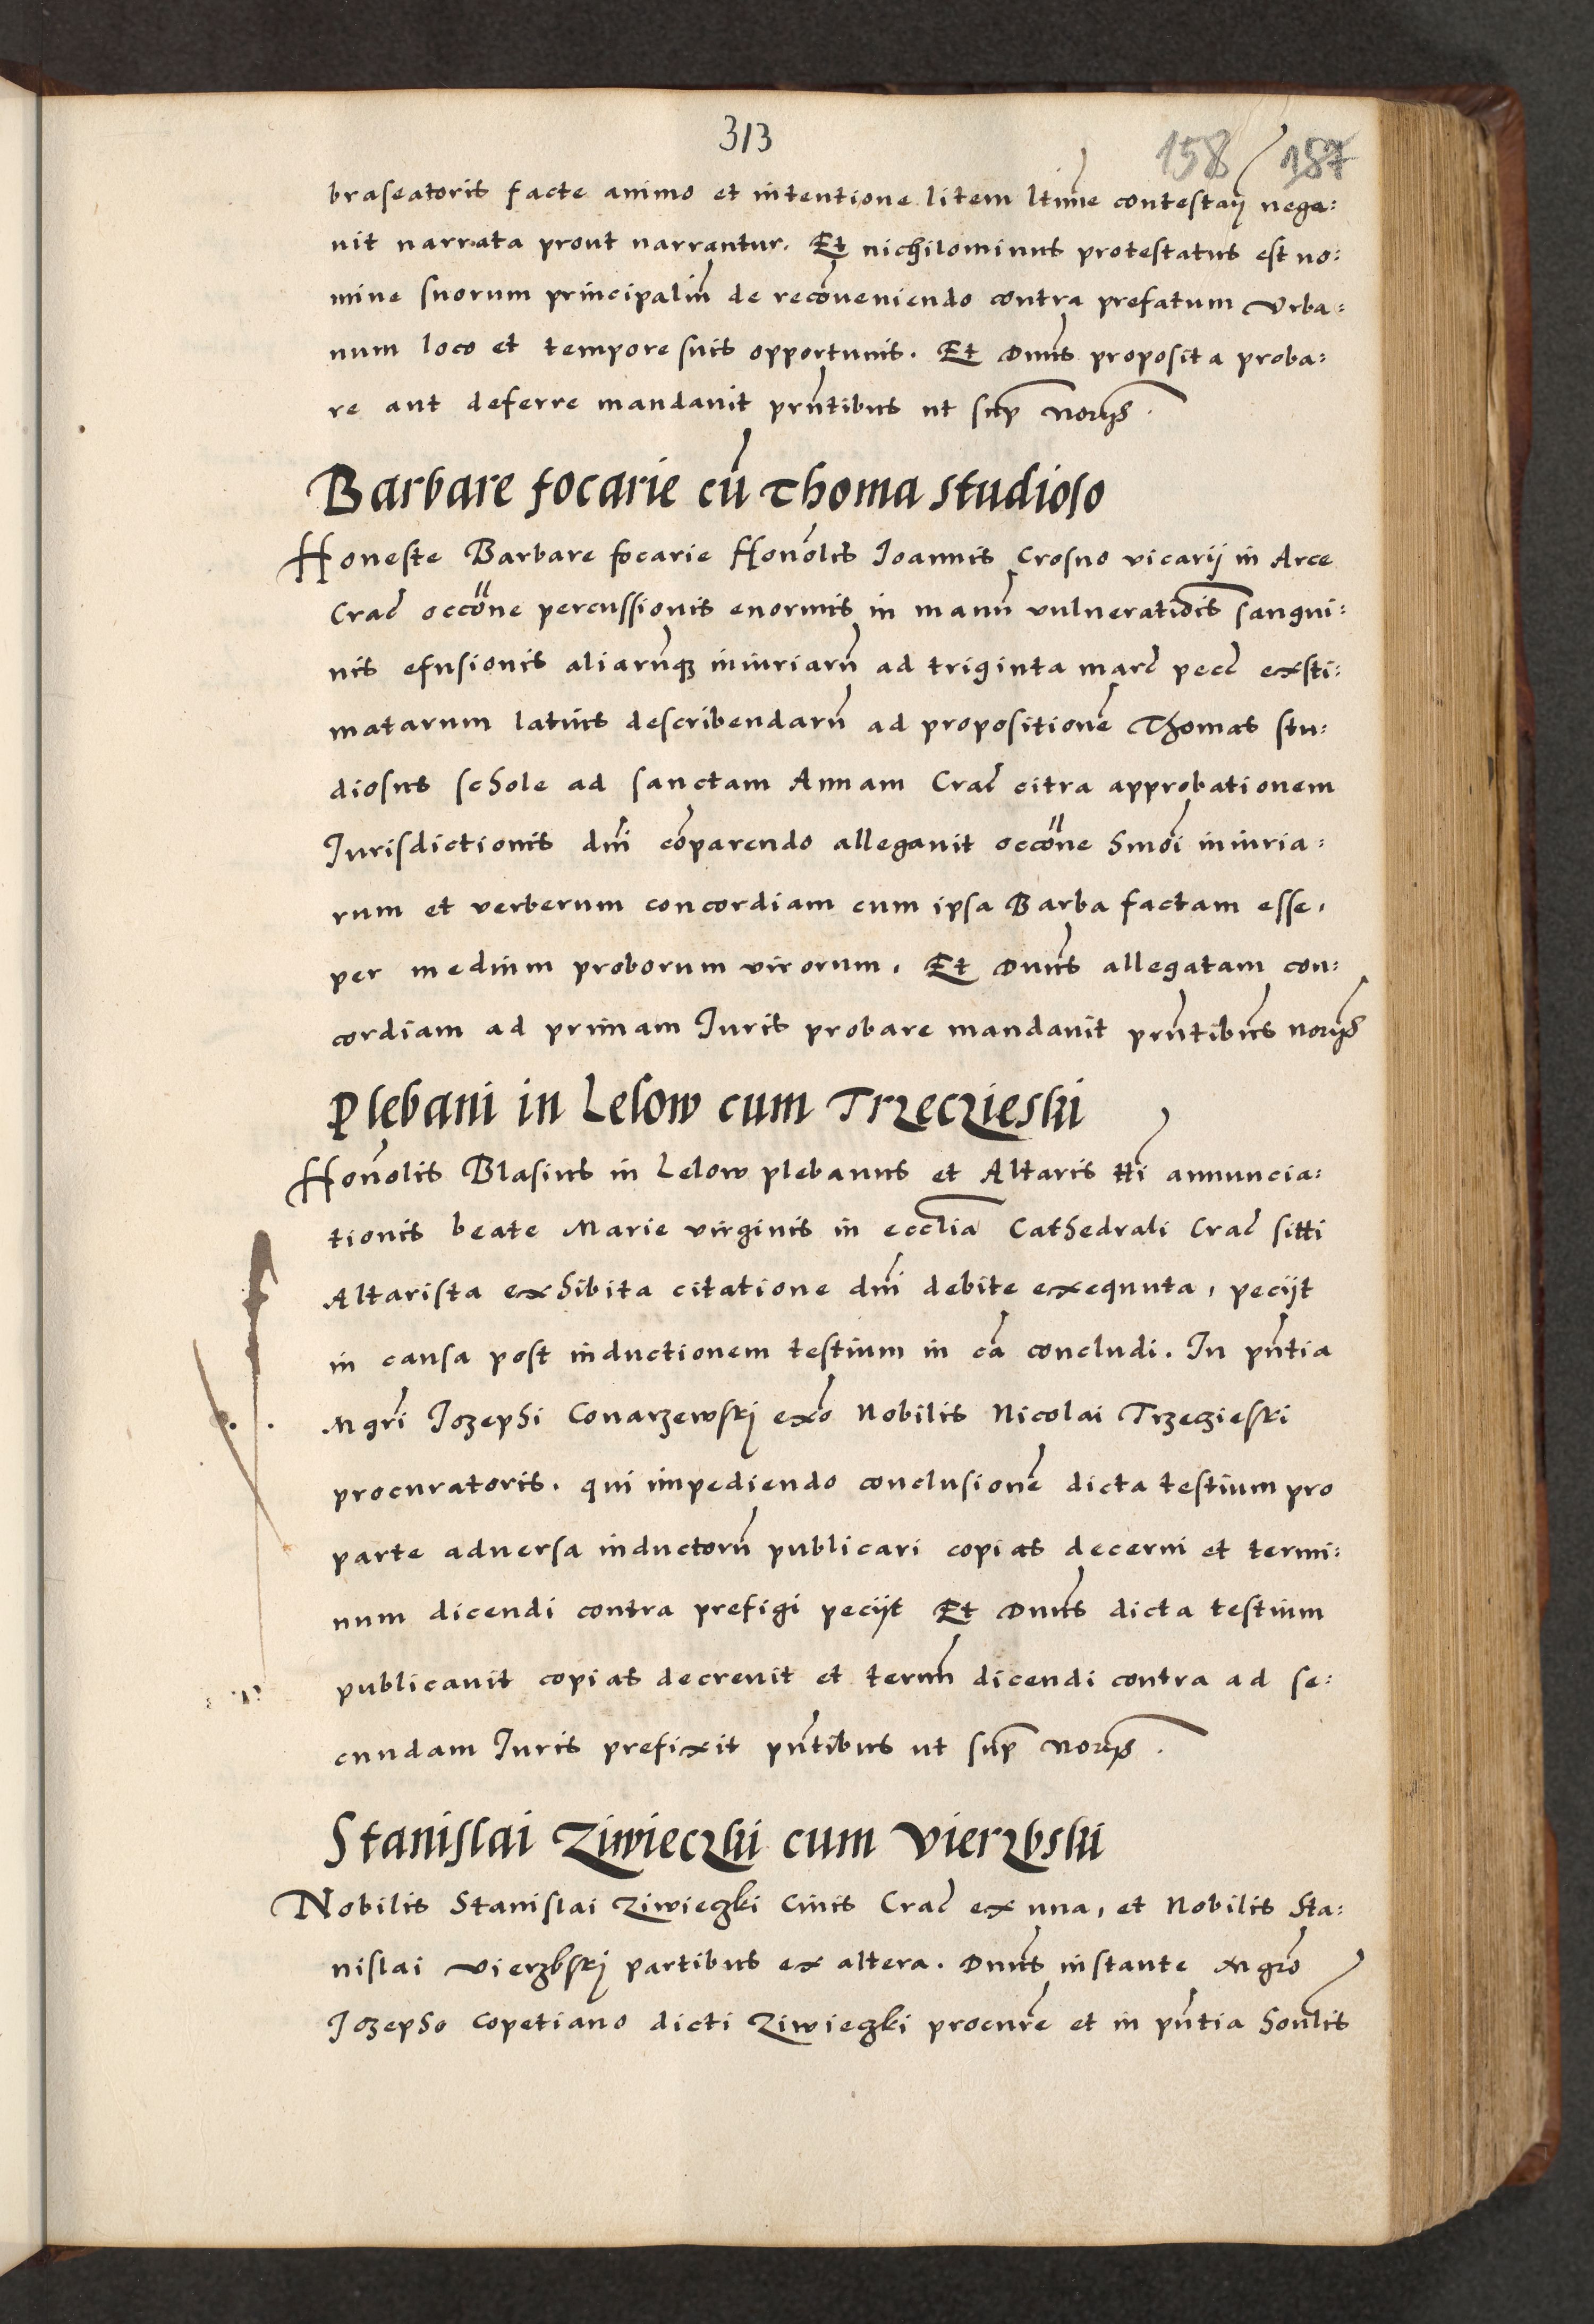 313
158 187
braseatoris facte animo et intentione litem ltime contestaņ nega:
vit narrata prout narrantur. Et nichilominus protestatus est no:
mine suorum principaliū de recōveniendo contra prefatum Urba:
num loco et tempore suis opportunis. Et Dnus proposita proba:
re aut deferre mandavit pñtibus ut sup Norijs.
Barbare focarie cū Thoma studioso
Honeste Barbare focarie Honolis Joannis Crosno vicarij in Arce
Crac occōne percussionis enormis in manu vulneratiōis sangui:
nis efusionis aliarūque iniuriarū ad triginta marc pecc exsti:
matarum latius describendarū ad propositionē Thomas stu:
diosus schole ad sanctam Annam Crac citra approbationem
Jurisdictionis dni cōparendo allegavit occōne hmōi iniuria:
rum et verberum concordiam cum ipsa Barba factam esse,
per medium proborum virorum. Et Dnus allegatam con:
cordiam ad primam Juris probare mandavit pñtibus norijs
Plebani in Lelow cum Trzeczieski
Honolis Blasius in Lelow plebanus et Altaris tti annuncia:
tionis beate Marie virginis in ecclia Cathedrali Crac sitti
Altarista exhibita citatione dni debite exequuta, pecijt
in causa post inductionem testium in cā concludi. In pñtia
Mgri Jozephi Conarzewskj exo Nobilis Nicolai Trzeczieski
procuratoris. qui impediendo conclusionē dicta testium pro
parte adversa inductorū publicari copias decerni et termi:
num dicendi contra prefigi pecijt Et Dnus dicta testium
publicavit copias decrevit et termū dicendi contra ad se:
cundam Juris prefixit pñtibus ut sup Norijs.
Stanislai Ziwieczki cum Vierzbski
Nobilis Stanislai Ziwieczki Civis Crac ex una, et Nobilis Sta:
nislai Vierzbskj partibus ex altera. Dnus instante Mgro
Jozepho Copetiano dicti Ziwieczki procurē et in pñtia honlis